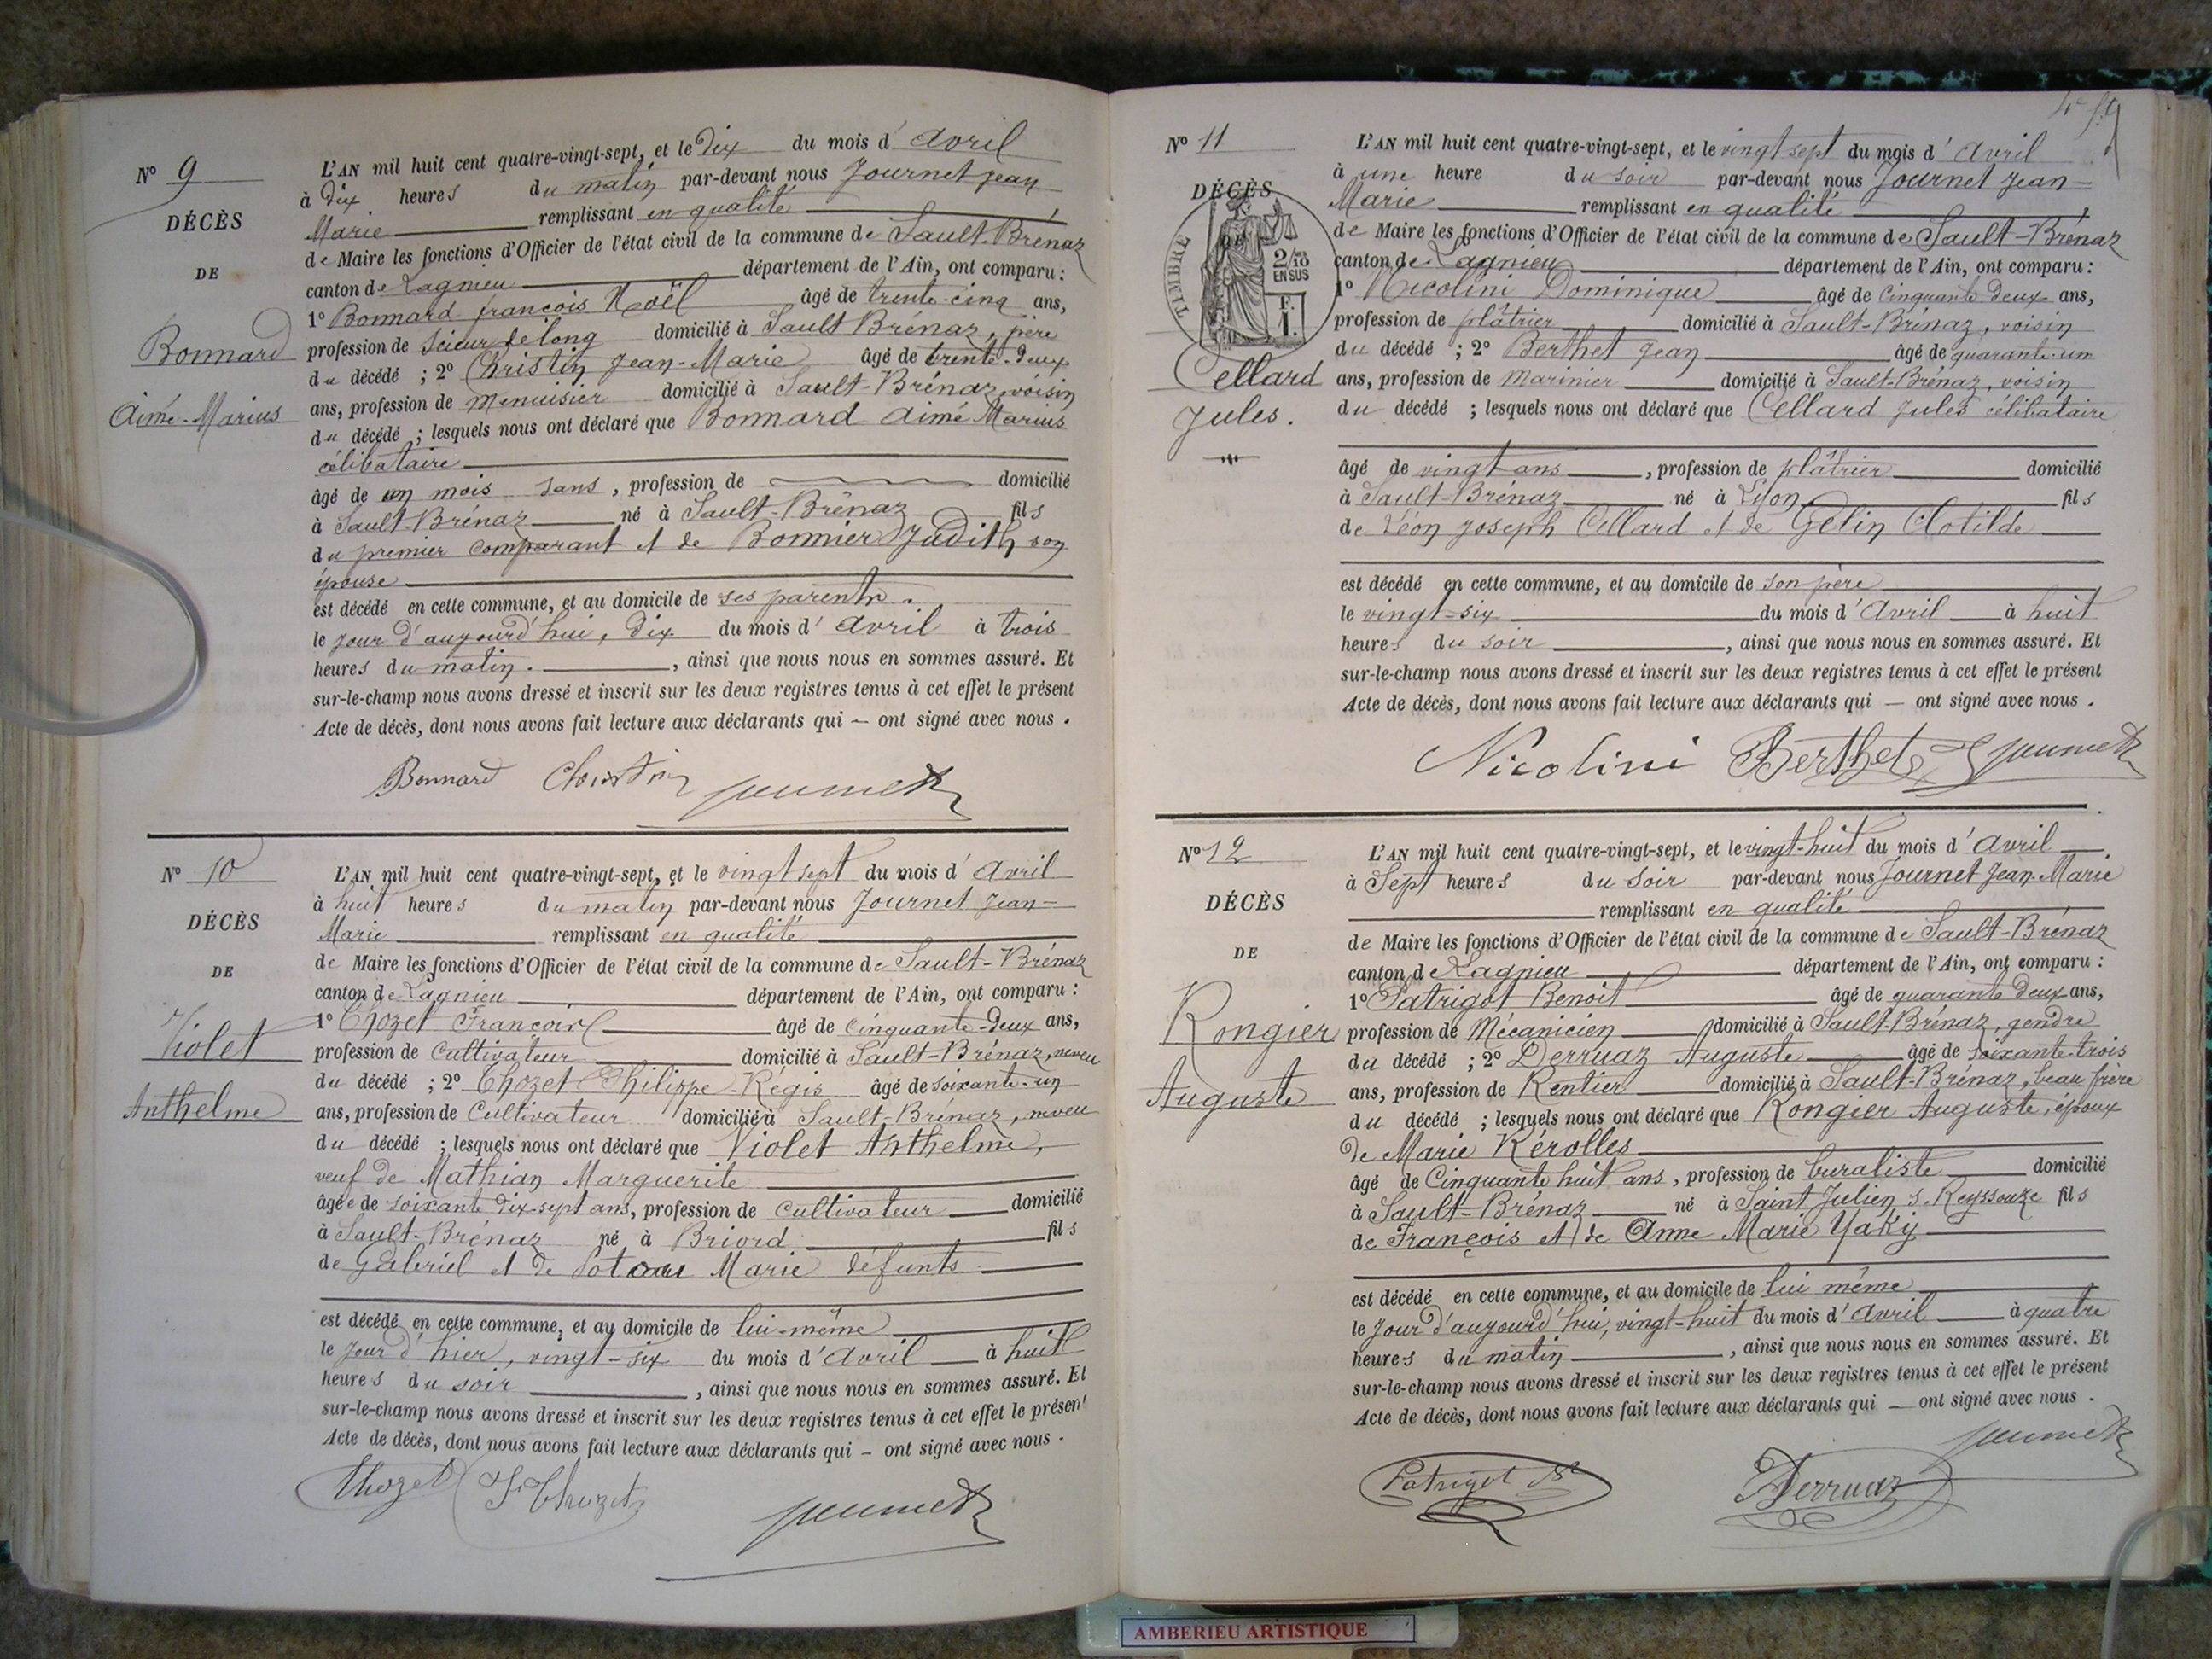 N° 9
DÉCÈS
DE
Bonnard
Aimé-Marius
L'AN mil huit cent quatre-vingt-sept, et le dix du mois d'avril
à dix heures du matin par-devant nous Journet Jean
Marie remplissant en qualité
de Maire les fonctions d'Officier de l'état civil de la commune de Sault-Brénaz
canton de Lagnieu département de l'Ain, ont comparu :
1° Bonnard françois Noël âgé de trente-cinq ans,
profession de Scieur de long domicilié à Sault Brénaz, père
du décédé ; 2° Christin Jean-Marie âgé de trente-deux
ans, profession de Menuisier domicilié à Sault-Brénaz, voisin
du décédé ; lesquels nous ont déclaré que Bonnard Aimé Marius
célibataire
âgé de un mois sans , profession de domicilié
à Sault-Brénaz né à Sault-Brénaz fils
du premier comparant et de Bonnier Judith son
épouse
est décédé en cette commune, et au domicile de ses parents.
le jour d'aujourd'hui, dix du mois d'avril à trois
heures du matin. , ainsi que nous nous en sommes assuré. Et
sur-le-champ nous avons dressé et inscrit sur les deux registres tenus à cet effet le présent
Acte de décès, dont nous avons fait lecture aux déclarants qui — ont signé avec nous .
Bonnard Christin Journet
N° 10
DÉCÈS
DE
Violet
Anthelme
L'AN mil huit cent quatre-vingt-sept, et le vingt sept du mois d'avril
à huit heures du matin par-devant nous Journet Jean-
Marie remplissant en qualité
de Maire les fonctions d'Officier de l'état civil de la commune de Sault-Brénaz
canton de Lagnieu département de l'Ain, ont comparu :
1° Thozet François âgé de cinquante-deux ans,
profession de Cultivateur domicilié à Sault-Brénaz, neveu
du décédé ; 2° Thozet Philippe-Régis âgé de soixante-un
ans, profession de Cultivateur domicilié à Sault-Brénaz, neveu
du décédé ; lesquels nous ont déclaré que Violet Anthelme,
veuf de Mathian Marguerite
âgée de soixante dix-sept ans, profession de Cultivateur domicilié
à Sault-Brénaz né à Briord fils
de Gabriel et de Marie défunts
est décédé en cette commune, et au domicile de lui-même
le jour d'hier, vingt-six du mois d'avril à huit
heures du soir , ainsi que nous nous en sommes assuré. Et
sur-le-champ nous avons dressé et inscrit sur les deux registres tenus à cet effet le présent
Acte de décès, dont nous avons fait lecture aux déclarants qui — ont signé avec nous .
Thozet Thozet Journet
N° 11
DÉCÈS
TIMBRE
2/10
EN SUS
F.
1.
Cellard
Jules.
L'AN mil huit cent quatre-vingt-sept, et le vingt sept du mois d'avril
à une heure du soir par-devant nous Journet Jean-
Marie remplissant en qualité
de Maire les fonctions d'Officier de l'état civil de la commune de Sault-Brénaz
canton de Lagnieu département de l'Ain, ont comparu :
1° Nicolini Dominique âgé de cinquante deux ans,
profession de plâtrier domicilié à Sault-Brénaz, voisin
du décédé ; 2° Berthet Jean âgé de quarante-un
ans, profession de Marinier domicilié à Sault-Brénaz, voisin
du décédé ; lesquels nous ont déclaré que Cellard Jules célibataire
âgé de vingt ans , profession de plâtrier domicilié
à Sault-Brénaz né à Lyon fils
de Léon Joseph Cellard et de Gelin Clotilde
est décédé en cette commune, et au domicile de son père
le vingt-six du mois d'avril à huit
heures du soir , ainsi que nous nous en sommes assuré. Et
sur-le-champ nous avons dressé et inscrit sur les deux registres tenus à cet effet le présent
Acte de décès, dont nous avons fait lecture aux déclarants qui — ont signé avec nous .
Nicolini Berthet Journet
N° 12
DÉCÈS
DE
Rongier
Auguste
L'AN mil huit cent quatre-vingt-sept, et le vingt-huit du mois d'avril
à Sept heures du soir par-devant nous Journet Jean-Marie
remplissant en qualité
de Maire les fonctions d'Officier de l'état civil de la commune de Sault-Brénaz
canton de Lagnieu département de l'Ain, ont comparu :
1° Patrigot Benoit âgé de quarante deux ans,
profession de Mécanicien domicilié à Sault-Brénaz, gendre
du décédé ; 2° Derruaz Auguste âgé de soixante-trois
ans, profession de Rentier domicilié à Sault-Brénaz, beau frère
du décédé ; lesquels nous ont déclaré que Rongier Auguste, époux
de Marie Rérolles
âgé de Cinquante huit ans, profession de buraliste domicilié
à Sault-Brénaz né à Saint Julien s. Reyssouze fils
de François et de Anne Marie Yaky
est décédé en cette commune, et au domicile de lui même
le jour d'aujourd'hui, vingt-huit du mois d'avril à quatre
heures du matin , ainsi que nous nous en sommes assuré. Et
sur-le-champ nous avons dressé et inscrit sur les deux registres tenus à cet effet le présent
Acte de décès, dont nous avons fait lecture aux déclarants qui — ont signé avec nous .
Journet
Patrigot Derruaz
AMBERIEU ARTISTIQUE